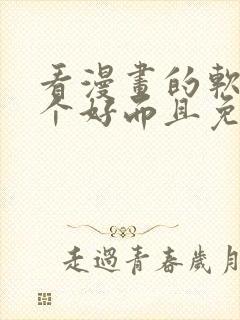 看漫畫的軟
个好而且免
走過青春歲月